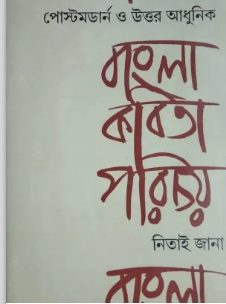 পোস্টমডার্ন ও উত্তর আধুনিক
বাংলা
কবিতা
পরিচয়
নিতাই জানা
বাংলা